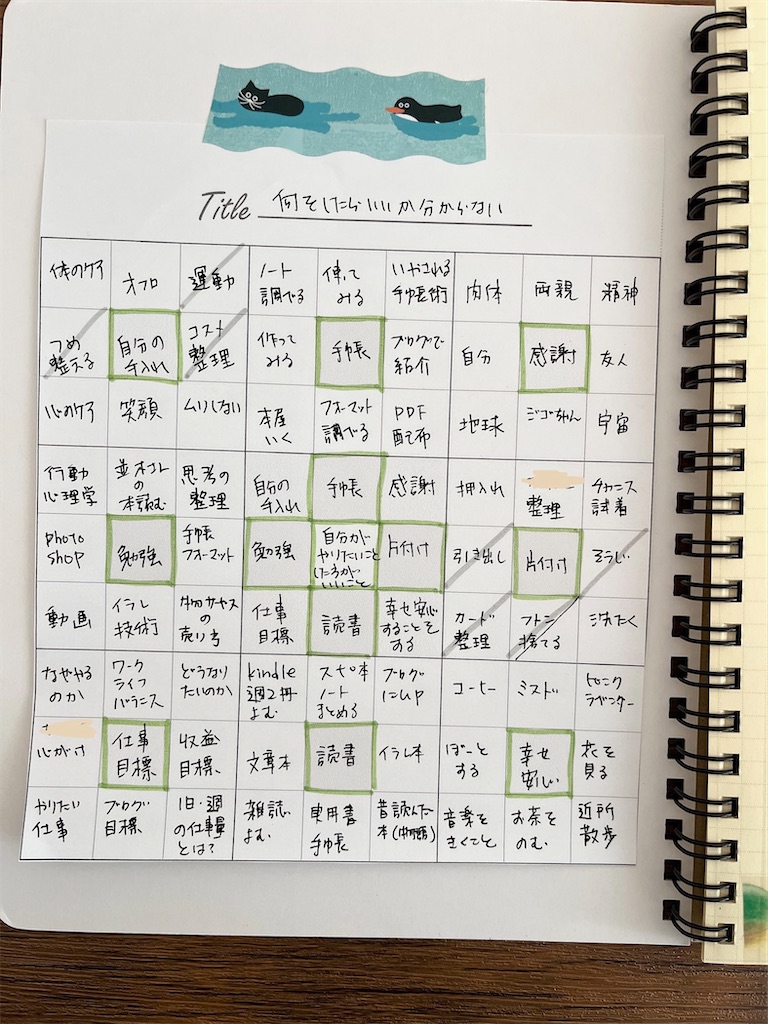 Title 何をしたらいいか分からない
体のケア
オフロ
運動
ノート
調べる
使って
みる
いやされる
手帳術
肉体
両親
精神
つめ
整える
自分の
手入れ
コスメ
整理
作って
みる
手帳
ブログで
紹介
自分
感謝
友人
心のケア
笑顔
ムリしない
本屋
いく
フォーマット
調べる
PDF
配布
地球
宇宙
行動
心理学
の
本読む
思考の
整理
自分の
手入れ
手帳
感謝
押入れ
整理
試着
photo
shop
勉強
手帳
フォーマット
勉強
自分が
やりたいこと
したほうが
いいこと
片付け
引き出し
片付け
そうじ
動画
イラレ
技術
の
売り方
仕事
目標
読書
幸せ安心
することを
する
カード
整理
フトン
捨てる
洗たく
なぜやる
のか
ワーク
ライフ
バランス
どうなり
たいのか
kindle
週2冊
よむ
スピ本
ノート
まとめる
ブログ
にUP
コーヒー
ミスド
ラベンダー
心がけ
仕事
目標
収益
目標
文章本
読書
イラレ本
ぼーと
する
幸せ
安心
衣を
見る
やりたい
仕事
ブログ
目標
1日・週
の仕事量
とは?
雑誌
よむ
実用書
手帳
昔読んだ
本
音楽を
きくこと
お茶を
のむ
近所
散歩